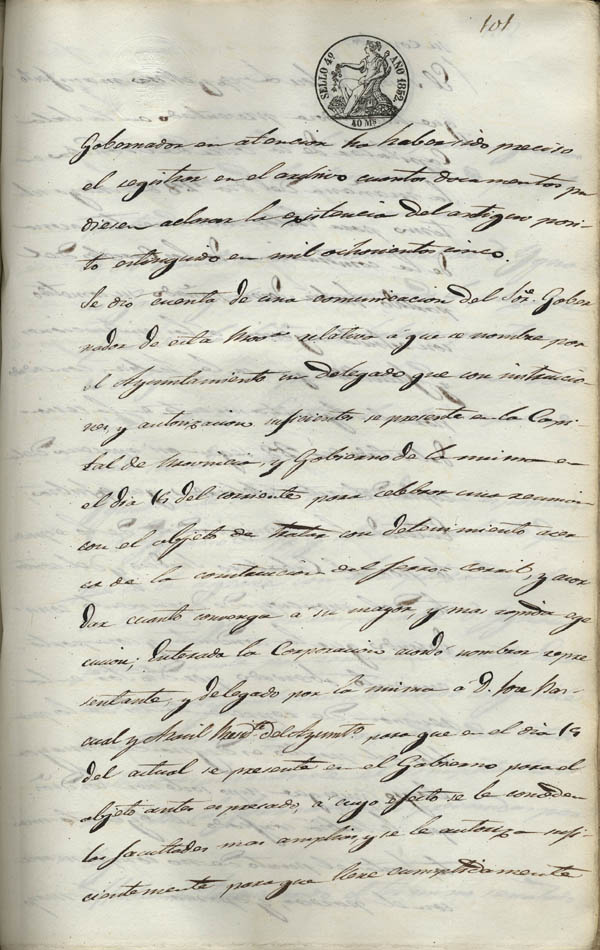 101
SELLO 4º AÑO 1852.
40 Ms
Gobernador en atencion ha haber sido preciso
el registrar en el archivo cuantos documentos pu
diesen aclarar la existencia del antiguo posi-
to estinguido en mil ochocientos cinco.
Se dio cuenta de una comunicacion del Sor. Gober
nador de esta Prova relativa á que se nombre por
el Ayuntamiento un delegado que con instruccio-
nes, y autorizacion suficientes se presente en la Capi
tal de Provincia, y Gobierno de la misma en
el dia 16 del corriente para celebrar una reunion
con el objeto de tratar con detenimiento acer
ca de la construccion del ferro-carril, y acor
dar cuanto convenga a su mayor, y mas rapida eje
cucion; Enterada la Corporacion acordó nombrar repre
sentante, y delegado por la misma á D. José Pas-
cual y Presidte del Ayuntº. para que en el dia 16
del actual se presente en el Gobierno para el
objeto antes espresado, a cuyo efecto se le conceden
las facultades mas amplias, y se le autoriza sufi
cientemente para que llene cumplidamente